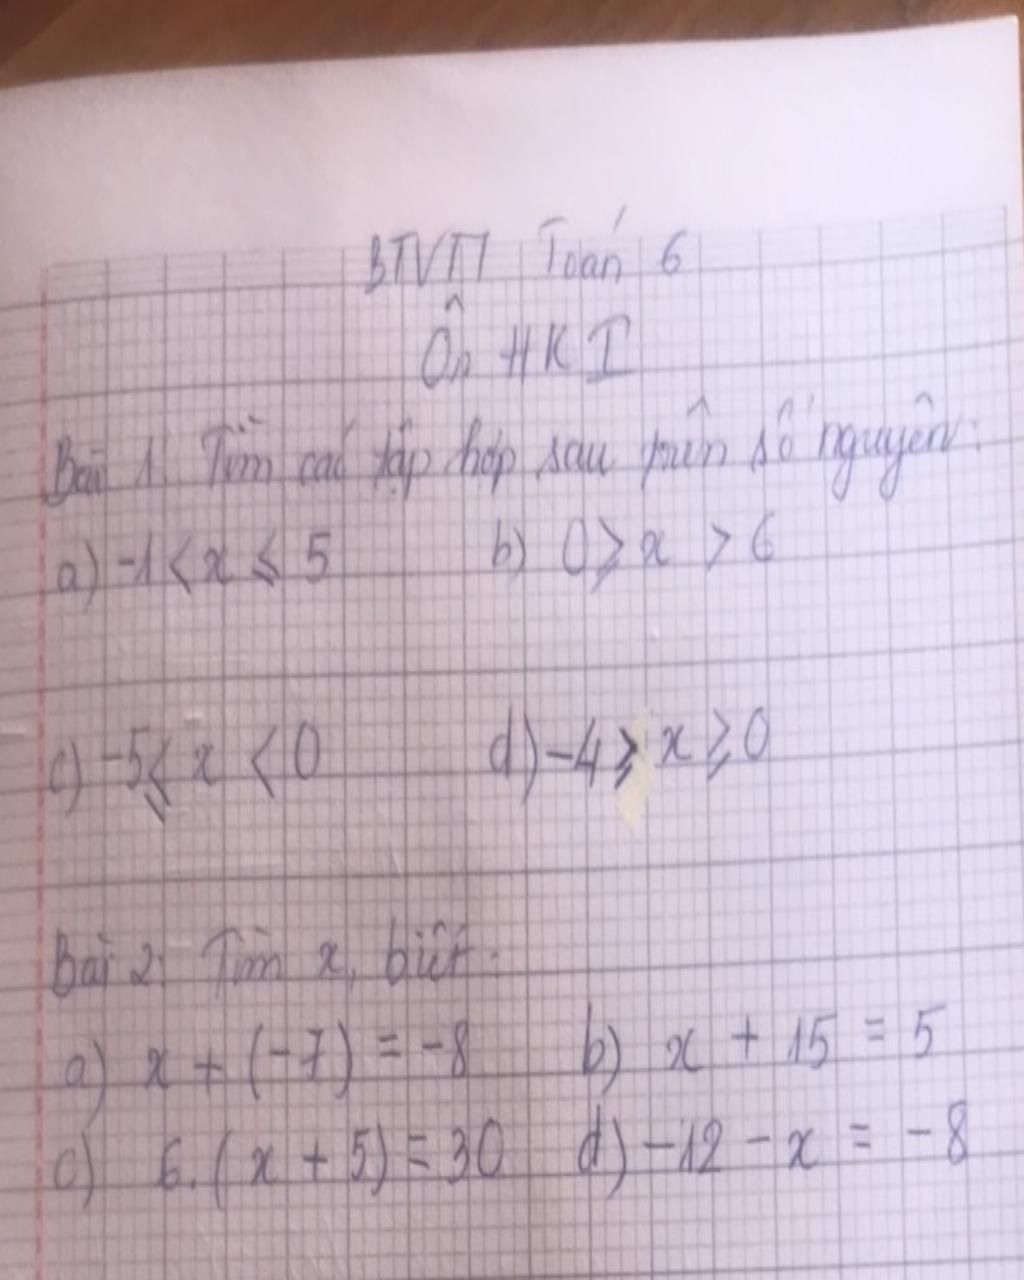 BTVN Toán 6
Ôn HK I
Bài 1: Tìm các tập hợp sau trên số nguyên:
a) -1 < x ≤ 5 b) 0 ≥ x > 6
c) -5 ≤ x < 0 d) -4 ≥ x ≥ 0
Bài 2: Tìm x, biết:
a) x + (-7) = -8 b) x + 15 = 5
c) 6.(x + 5) = 30 d) -12 - x = -8